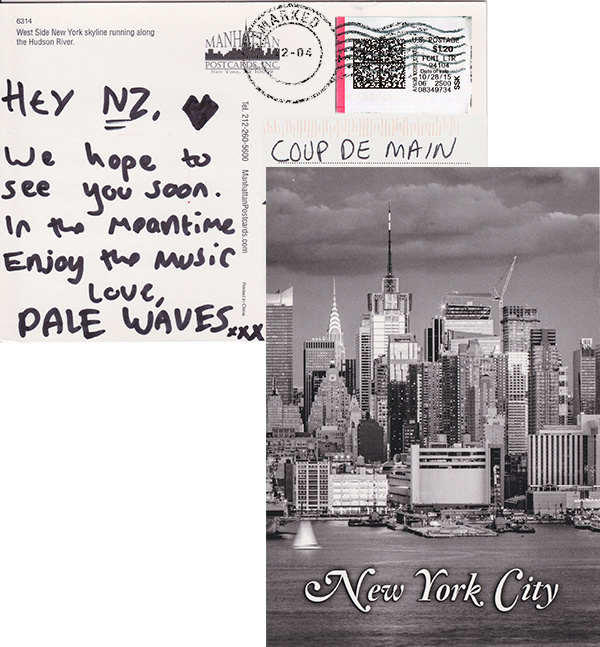 6314
West Side New York skyline running along
the Hudson River.
MANHATTAN
POSTCARDS, INC
New York, NY 10010
MARKED
2-04
U.S. POSTAGE
$1.20
FCMI LTR
04104
Date of sale
10/28/15
06 2S00
08349734
SSK
HEY NZ,
We hope to
see you soon.
In the meantime
Enjoy the music
Love,
PALE WAVES xxx
Tel. 212-260-5600 ManhattanPostcards.com
Printed in China
COUP DE MAIN
New York City